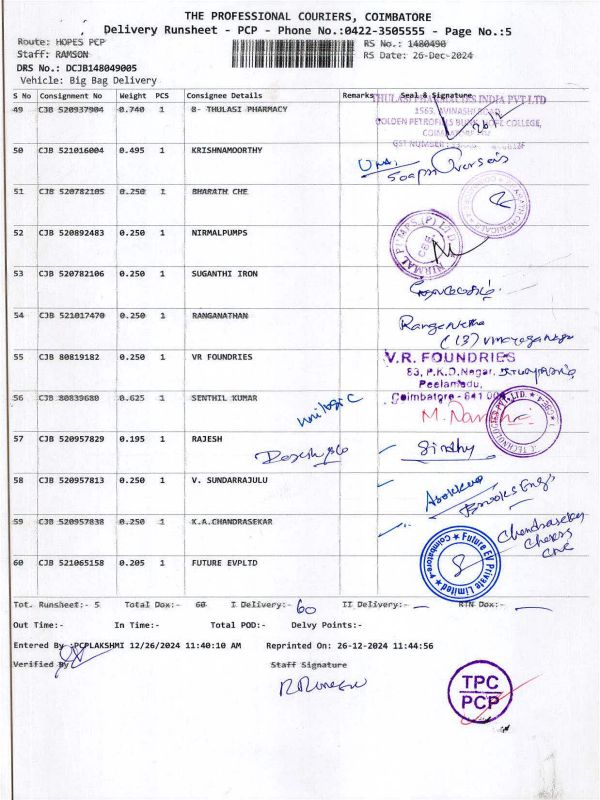 THE PROFESSIONAL COURIERS, COIMBATORE
Delivery Runsheet - PCP - Phone No.:0422-3505555 - Page No.:5
Route: HOPES PCP
RS No.: 1480490
Staff: RAMSON
RS Date: 26-Dec-2024
DRS No.: DCJB148049005
Vehicle: Big Bag Delivery
S No Consignment No Weight PCS Consignee Details Remarks Seal & Signature
49 CJB 520937904 0.740 1 8- THULASI PHARMACY
THULASI PHARMACIES INDIA PVT LTD
1563, AVINASHI ROAD
GOLDEN PETROFILLS BUNK, HOPE COLLEGE,
GST NUMBER
50 CJB 521016004 0.495 1 KRISHNAMOORTHY
Soapra Overseas
51 CJB 520782105 0.250 1 BHARATH CHE
52 CJB 520892483 0.250 1 NIRMALPUMPS
NIRMAL PUMPS (P) LTD. CBE.
53 CJB 520782106 0.250 1 SUGANTHI IRON
54 CJB 521017470 0.250 1 RANGANATHAN
55 CJB 80819182 0.250 1 VR FOUNDRIES
V.R. FOUNDRIES
83, P.K.D.Nagar,
Peelamedu,
Coimbatore - 641 004
56 CJB 80839680 0.625 1 SENTHIL KUMAR
TECHNOLOGIES PVT. LTD.
57 CJB 520957829 0.195 1 RAJESH
58 CJB 520957813 0.250 1 V. SUNDARRAJULU
Brooks Engg
59 CJB 520957838 0.250 1 K.A.CHANDRASEKAR
Chandrasekar
CNC
60 CJB 521065158 0.205 1 FUTURE EVPLTD
Future EV Private Limited
Coimbatore-4
Tot. Runsheet:- 5 Total Dox:- 60 I Delivery:- 60 II Delivery:- — RTN Dox:- —
Out Time:- In Time:- Total POD:- Delvy Points:-
Entered By :PCPLAKSHMI 12/26/2024 11:40:10 AM Reprinted On: 26-12-2024 11:44:56
Verified By
Staff Signature
TPC
PCP